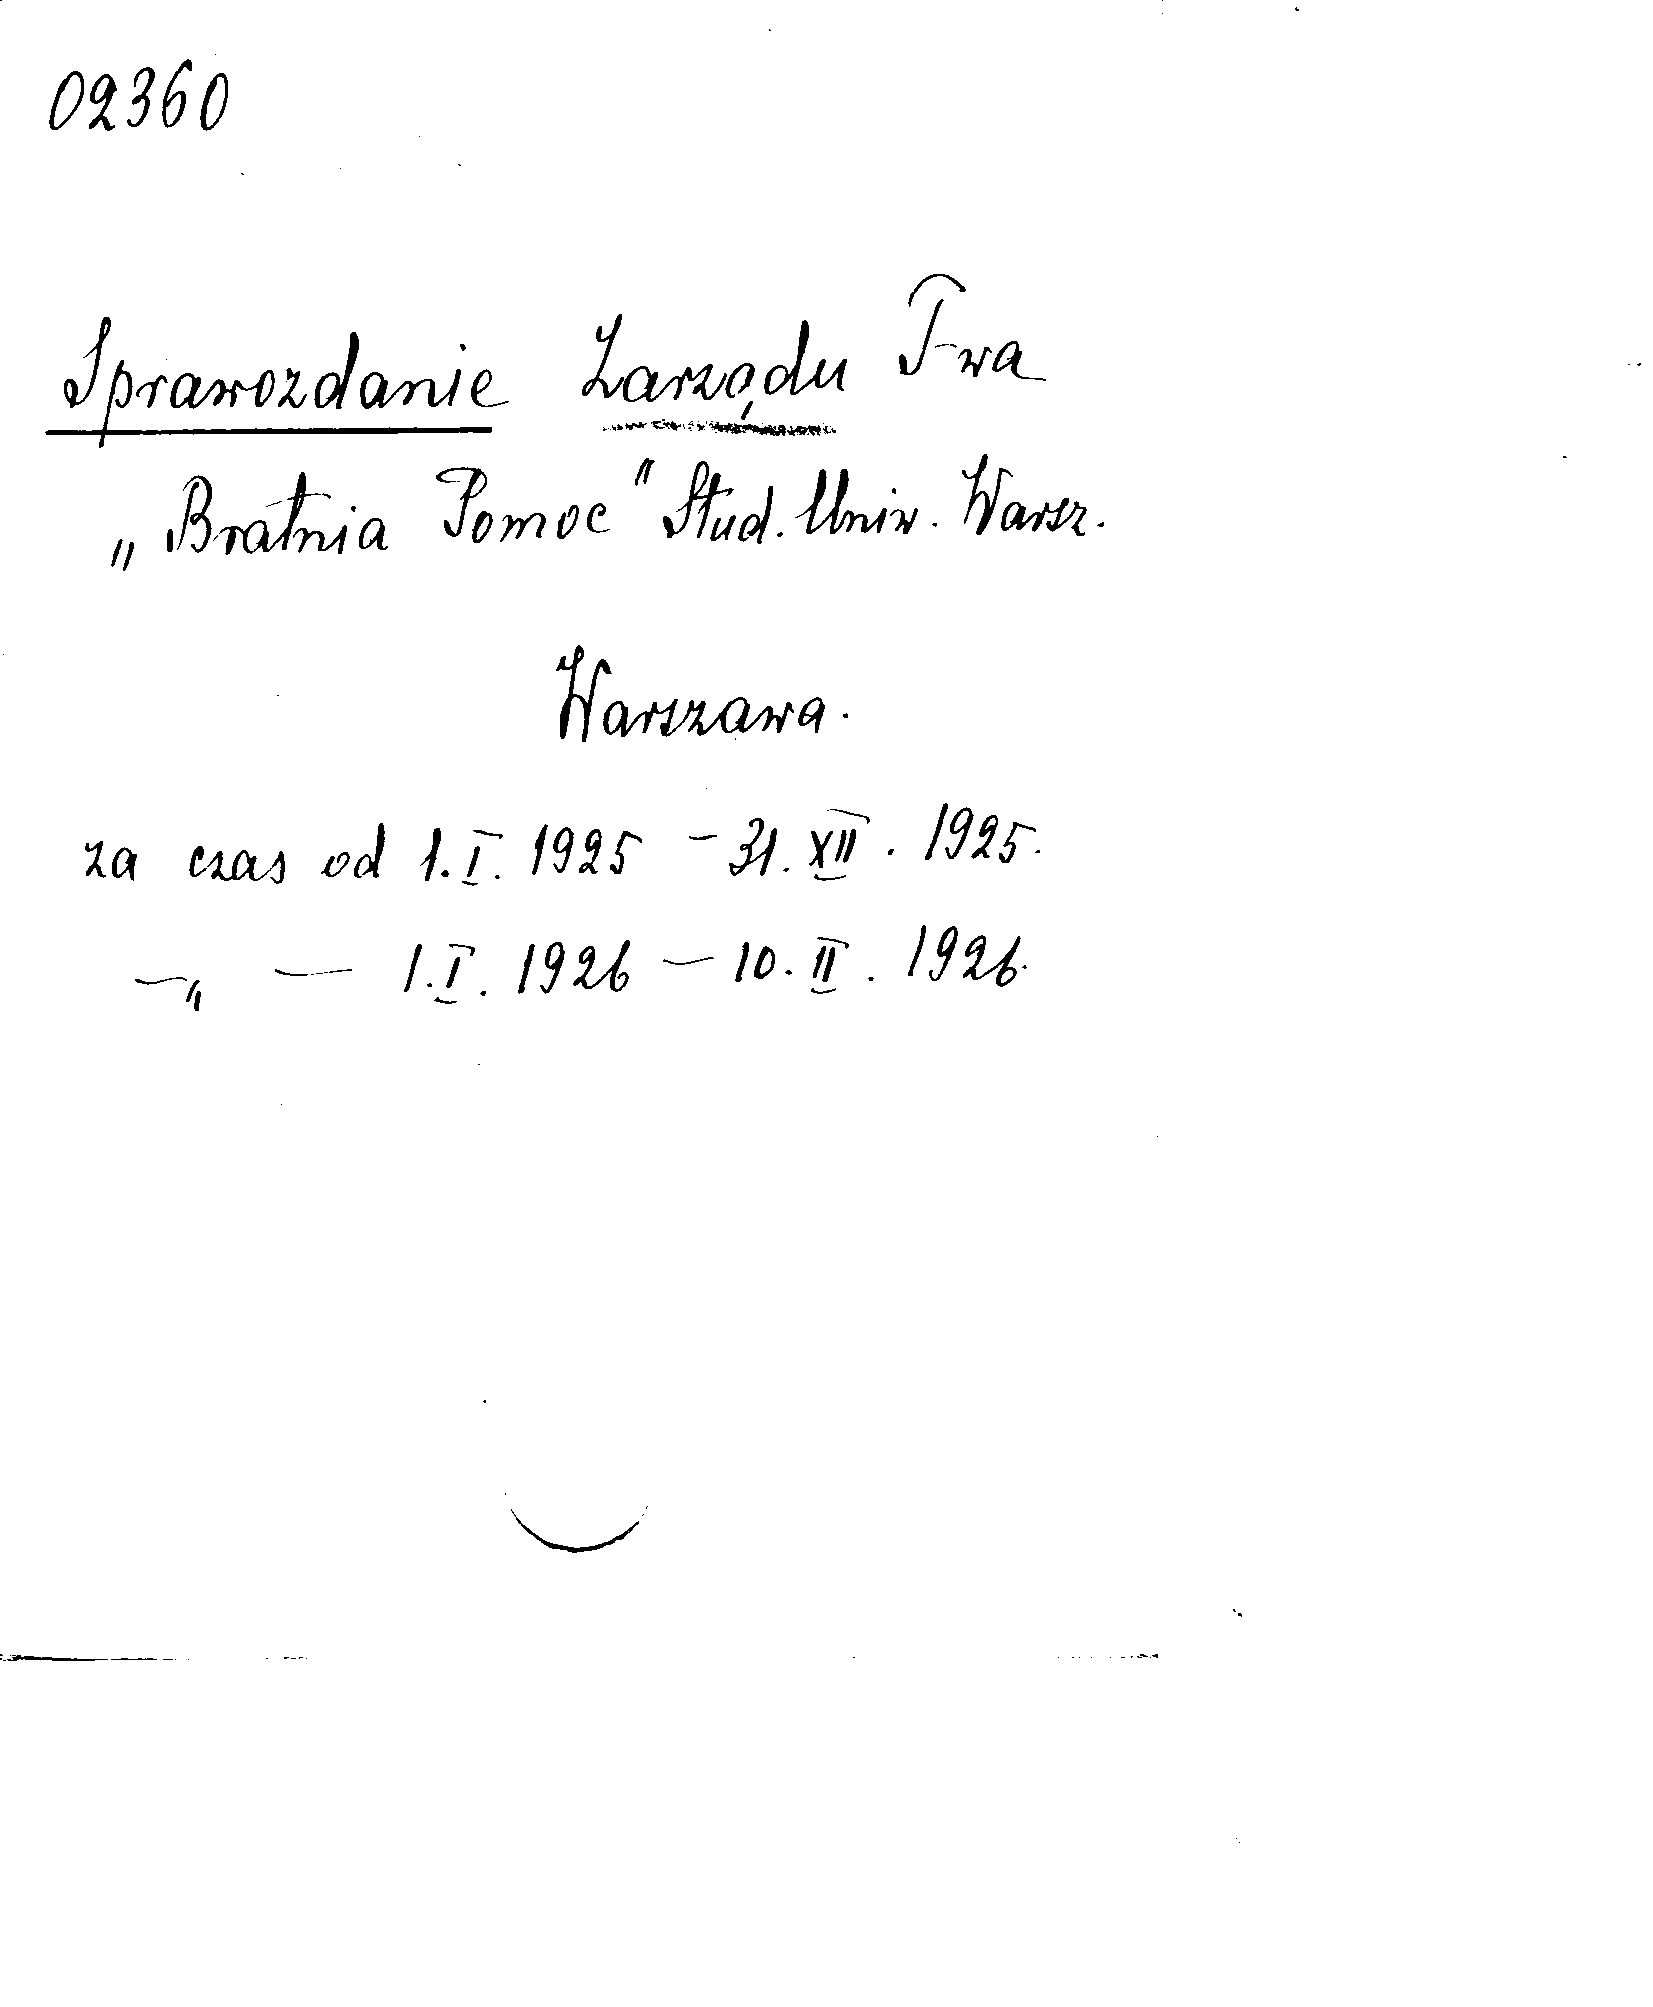 02360
Sprawozdanie Zarządu T-wa
„Bratnia Pomoc" Stud. Uniw. Warsz.
Warszawa.
za czas od 1.I. 1925 – 31. XII. 1925.
—„ — 1.I. 1926 — 10. II. 1926.